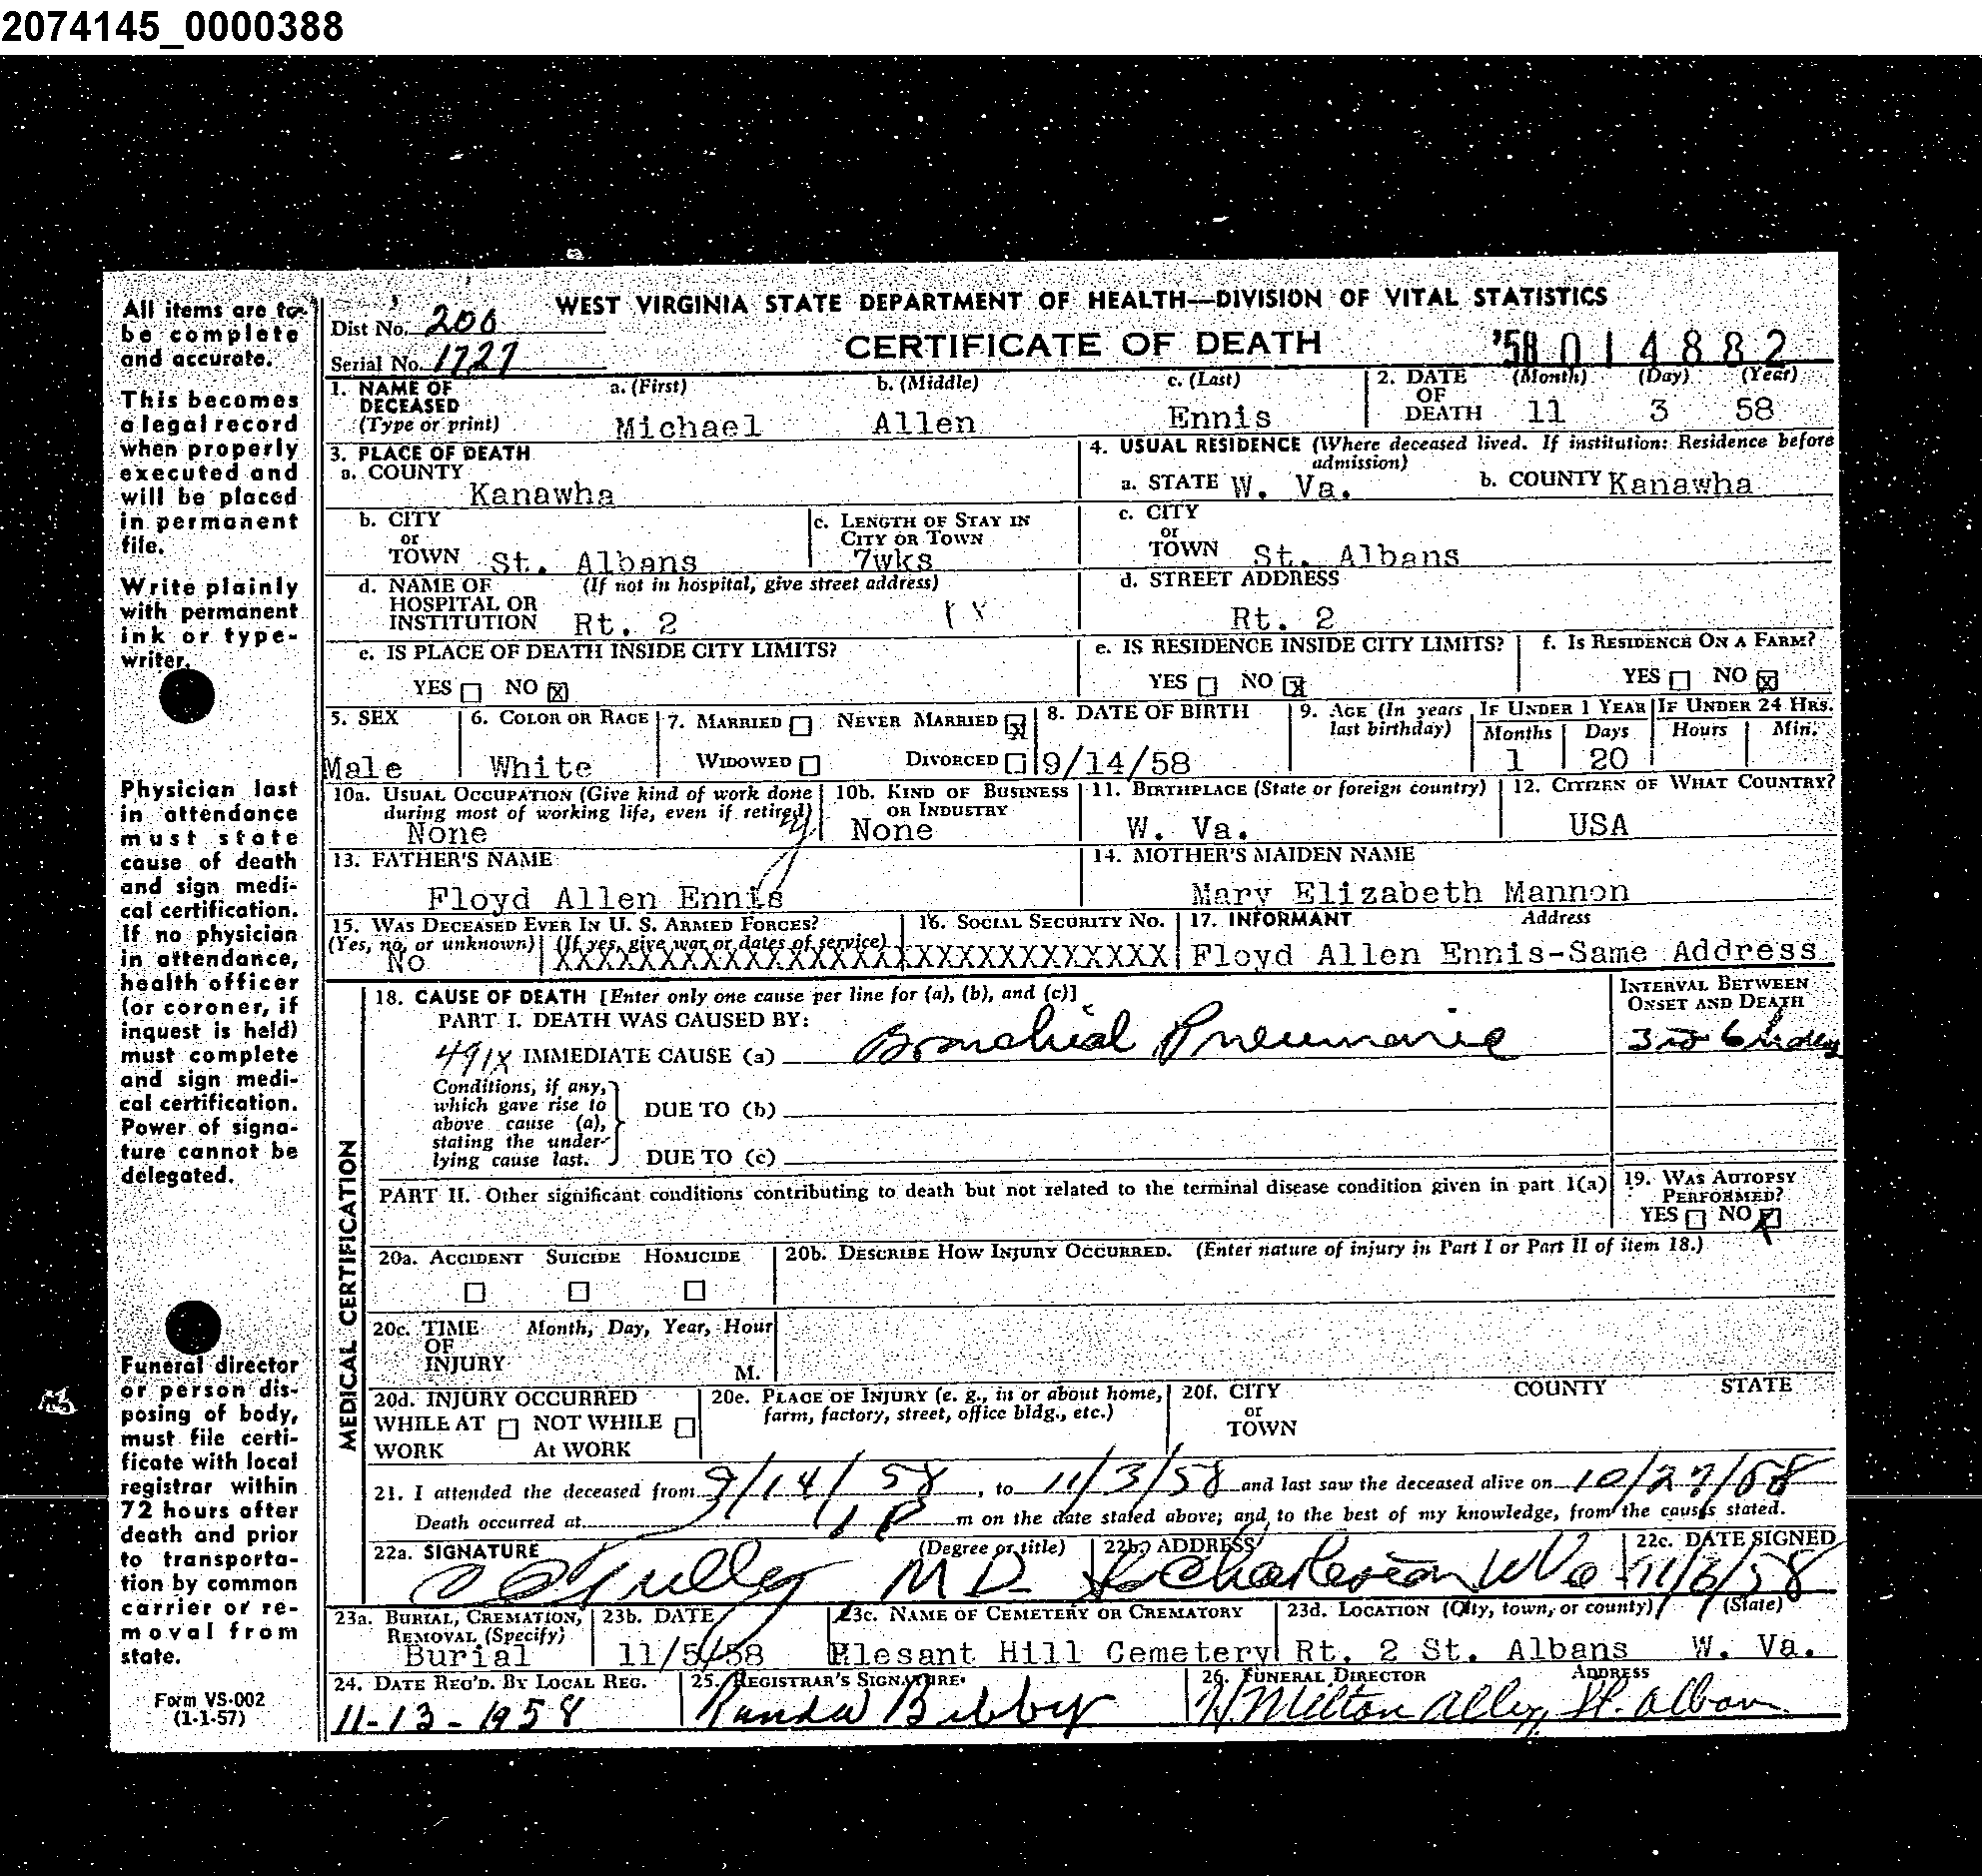 2074145_0000388
All items are to be complete and accurate.
This becomes a legal record when properly executed and will be placed in permanent file.
Write plainly with permanent ink or type-writer.
Physician last in attendance must state cause of death and sign medi-cal certification. If no physician in attendance, health officer (or coroner, if inquest is held) must complete and sign medi-cal certification. Power of signa-ture cannot be delegated.
Funeral director or person dis-posing of body, must file certi-ficate with local registrar within 72 hours after death and prior to transporta-tion by common carrier or re-moval from state.
Form VS-002
(1-1-57)
WEST VIRGINIA STATE DEPARTMENT OF HEALTH—DIVISION OF VITAL STATISTICS
Dist No. 206
Serial No. 1727
CERTIFICATE OF DEATH
'58 014882
1. NAME OF DECEASED (Type or print) a. (First) Michael b. (Middle) Allen c. (Last) Ennis
2. DATE OF DEATH (Month) 11 (Day) 3 (Year) 58
3. PLACE OF DEATH
a. COUNTY Kanawha
b. CITY or TOWN St. Albans
c. LENGTH OF STAY IN CITY OR TOWN 7wks
d. NAME OF HOSPITAL OR INSTITUTION (If not in hospital, give street address) Rt. 2
e. IS PLACE OF DEATH INSIDE CITY LIMITS?
YES NO X
4. USUAL RESIDENCE (Where deceased lived. If institution: Residence before admission)
a. STATE W. Va. b. COUNTY Kanawha
c. CITY or TOWN St. Albans
d. STREET ADDRESS Rt. 2
e. IS RESIDENCE INSIDE CITY LIMITS?
YES NO X
f. IS RESIDENCE ON A FARM?
YES NO X
5. SEX Male
6. COLOR OR RACE White
7. MARRIED NEVER MARRIED X
WIDOWED DIVORCED
8. DATE OF BIRTH 9/14/58
9. AGE (In years last birthday) IF UNDER 1 YEAR Months 1 Days 20 IF UNDER 24 HRS. Hours Min.
10a. USUAL OCCUPATION (Give kind of work done during most of working life, even if retired) None
10b. KIND OF BUSINESS OR INDUSTRY None
11. BIRTHPLACE (State or foreign country) W. Va.
12. CITIZEN OF WHAT COUNTRY? USA
13. FATHER'S NAME Floyd Allen Ennis
14. MOTHER'S MAIDEN NAME Mary Elizabeth Mannon
15. WAS DECEASED EVER IN U. S. ARMED FORCES?
(Yes, no, or unknown) No (If yes, give war or dates of service) XXXXXXXXXXXXXXXXX
16. SOCIAL SECURITY NO. XXXXXXXXXXXXX
17. INFORMANT Address
Floyd Allen Ennis-Same Address
MEDICAL CERTIFICATION
18. CAUSE OF DEATH [Enter only one cause per line for (a), (b), and (c)]
PART I. DEATH WAS CAUSED BY:
491X IMMEDIATE CAUSE (a) Bronchial Pneumonie
INTERVAL BETWEEN ONSET AND DEATH
Conditions, if any, which gave rise to above cause (a), stating the under-lying cause last.
DUE TO (b)
DUE TO (c)
PART II. Other significant conditions contributing to death but not related to the terminal disease condition given in part 1(a)
19. WAS AUTOPSY PERFORMED?
YES NO X
20a. ACCIDENT SUICIDE HOMICIDE
20b. DESCRIBE HOW INJURY OCCURRED. (Enter nature of injury in Part I or Part II of item 18.)
20c. TIME OF INJURY Month, Day, Year, Hour M.
20d. INJURY OCCURRED
WHILE AT WORK NOT WHILE At WORK
20e. PLACE OF INJURY (e. g., in or about home, farm, factory, street, office bldg., etc.)
20f. CITY or TOWN COUNTY STATE
21. I attended the deceased from 9/14/58, to 11/3/58 and last saw the deceased alive on 10/27/58
Death occurred at 1 P m on the date stated above; and to the best of my knowledge, from the causes stated.
22a. SIGNATURE (Degree or title) M D
22b. ADDRESS Charleston W Va
22c. DATE SIGNED 11/6/58
23a. BURIAL, CREMATION, REMOVAL (Specify) Burial
23b. DATE 11/5/58
23c. NAME OF CEMETERY OR CREMATORY Plesant Hill Cemetery
23d. LOCATION (City, town, or county) (State) Rt. 2 St. Albans W. Va.
24. DATE REC'D. BY LOCAL REG. 11-13-1958
25. REGISTRAR'S SIGNATURE Randa Bibby
26. FUNERAL DIRECTOR ADDRESS
Milton Alley, St. Albans